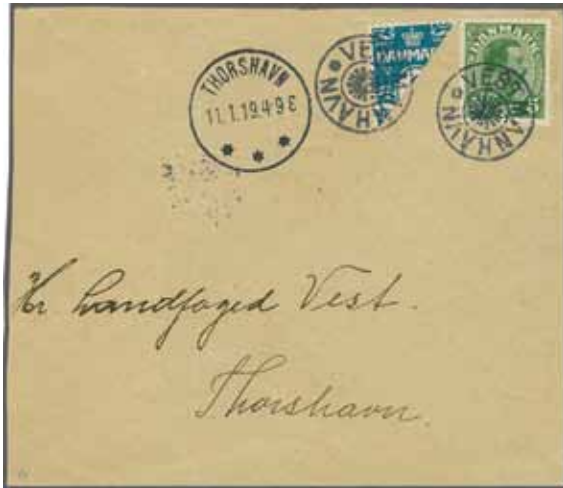 THORSHAVN
11.1.19.4-9 E
VESTMANHAVN
DANMARK
VESTMANHAVN
DANMARK
5
Hr Landfoged Vest.
Thorshavn.